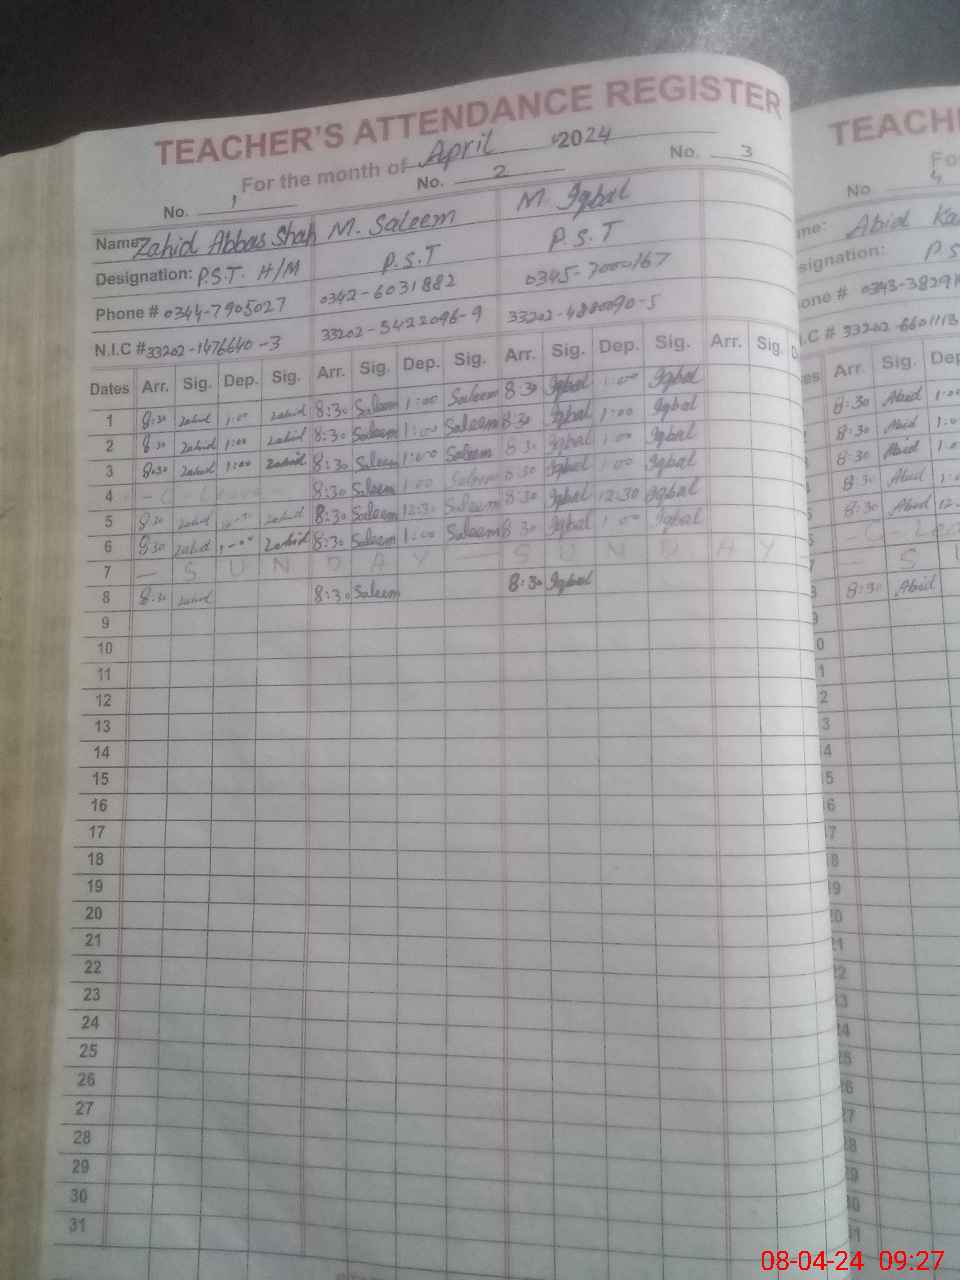 TEACHER'S ATTENDANCE REGISTER
For the month of April 2024
No. 1 No. 2 No. 3
Name Zahid Abbas Shah M. Saleem M. Iqbal
Designation: P.S.T. H/M P.S.T P.S.T
Phone # 0344-7905027 0342-6031882 0345-7000167
N.I.C # 33202-1476640-3 33202-5422096-9 33202-4880090-5
Dates Arr. Sig. Dep. Sig. Arr. Sig. Dep. Sig. Arr. Sig. Dep. Sig. Arr. Sig.
1 8:30 Zahid 1:00 Zahid 8:30 Saleem 1:00 Saleem 8:30 Iqbal 1:00 Iqbal
2 8:30 Zahid 1:00 Zahid 8:30 Saleem 1:00 Saleem 8:30 Iqbal 1:00 Iqbal
3 8:30 Zahid 1:00 Zahid 8:30 Saleem 1:00 Saleem 8:30 Iqbal 1:00 Iqbal
4 - C - Leave - 8:30 Saleem 1:00 Saleem 8:30 Iqbal 1:00 Iqbal
5 8:30 Zahid Zahid 8:30 Saleem 12:30 Saleem 8:30 Iqbal 12:30 Iqbal
6 8:30 Zahid 1:00 Zahid 8:30 Saleem 1:00 Saleem 8:30 Iqbal 1:00 Iqbal
7 — S U N D A Y — S U N D A Y
8 8:30 Zahid 8:30 Saleem 8:30 Iqbal
9
10
11
12
13
14
15
16
17
18
19
20
21
22
23
24
25
26
27
28
29
30
31
TEACH
Fo
No. 4
me: Abid Ka
signation: P.S
one # 0343-3829
.C # 33202-6601113
es Arr. Sig. Dep
8:30 Abid 1:0
8:30 Abid 1:0
8:30 Abid 1:0
8:30 Abid 1:0
8:30 Abid 12
- C - Lea
- S U
8:30 Abid
08-04-24 09:27